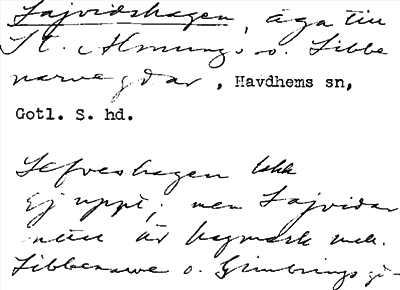 Lajvidshagen, äga till
St. Almungs o. Sibbe
narvegdar, Havdhems sn,
Gotl. S. hd.
hagen
Ej uppt; men Lajvidar
är hagmark mel.
Sibbenarve o. Grimbrings